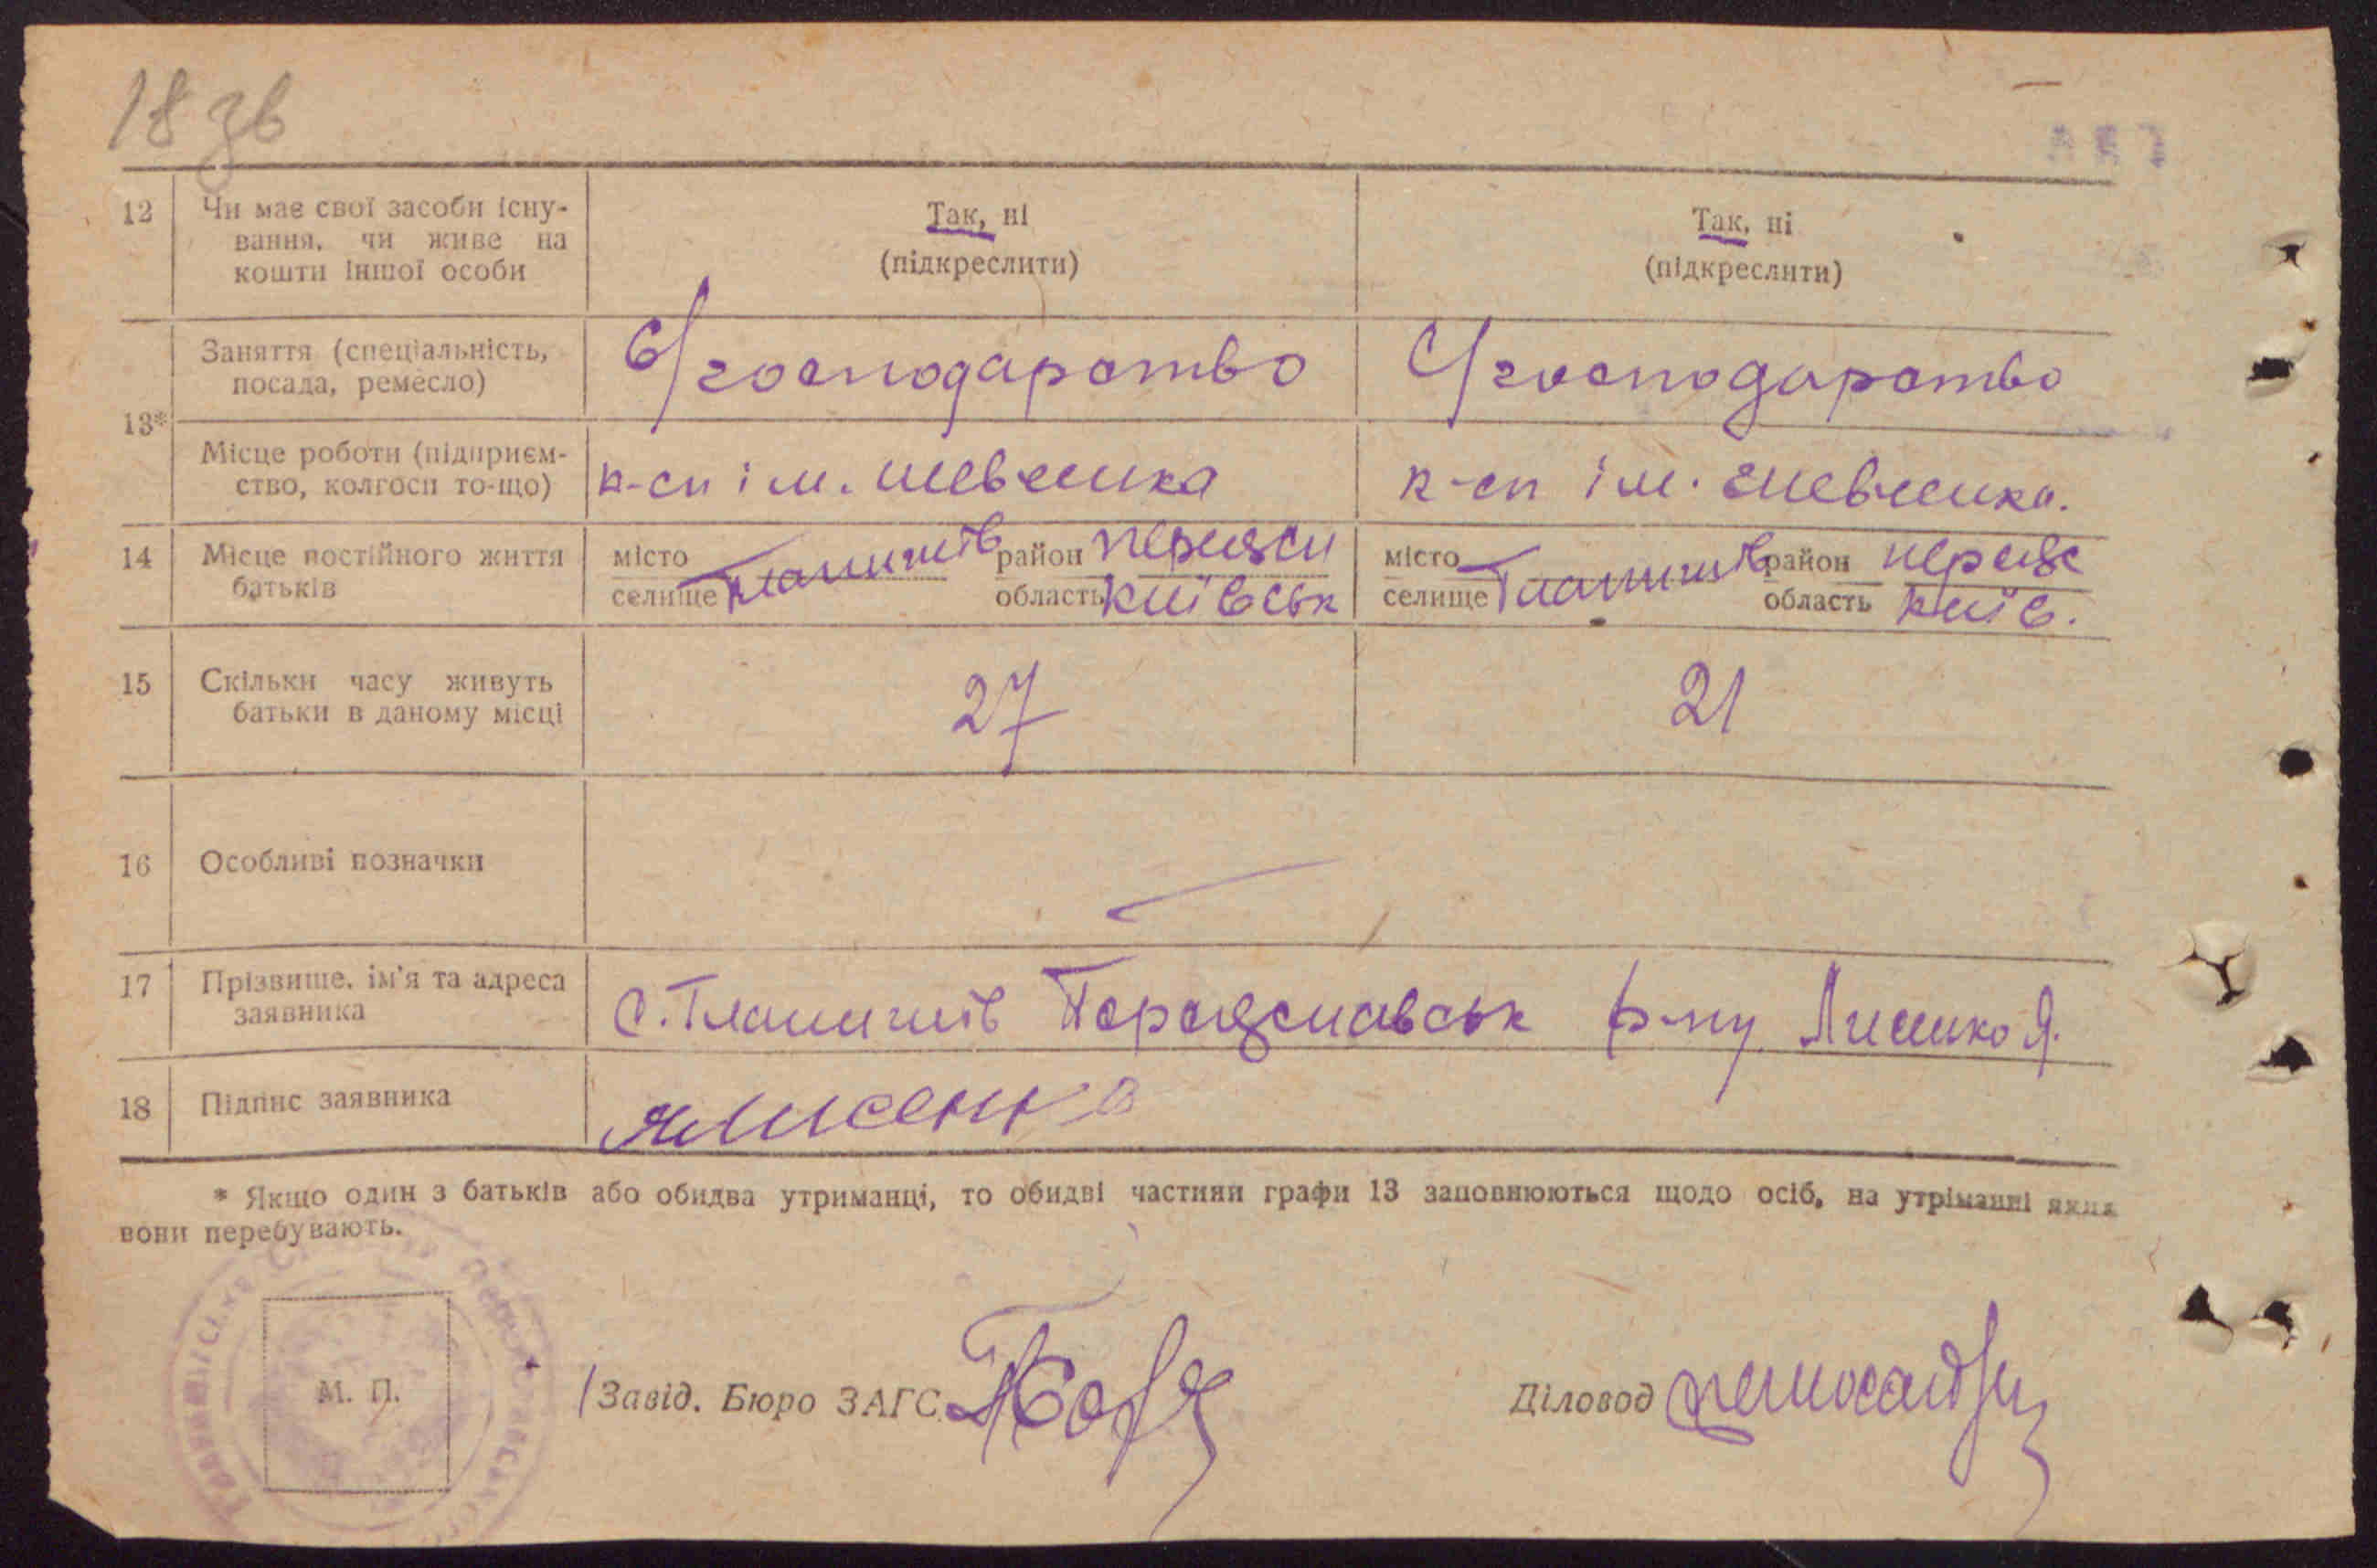 18 зв
12 Чи має свої засоби існу-
вання, чи живе на
кошти іншої особи
Так, ні
(підкреслити)
Так, ні
(підкреслити)
13*
Заняття (спеціальність,
посада, ремесло)
С/господарство
С/господарство
Місце роботи (підприєм-
ство, колгосп то-що)
к-сп ім. Шевченка
к-сп ім. Шевченка.
14 Місце постійного життя
батьків
місто
селище Гланишів
район Переясл
область Київськ
місто
селище Гланишів
район Переяс
область Київ.
15 Скільки часу живуть
батьки в даному місці
27
21
16 Особливі позначки
17 Прізвище, ім'я та адреса
заявника
С. Гланишів Переяславськ р-ну Лисенко Я.
18 Підпис заявника
Лисенко
* Якщо один з батьків або обидва утриманці, то обидві частини графи 13 заповнюються щодо осіб, на утріманні яких
вони перебувають.
М. П.
Завід. Бюро ЗАГС
Діловод